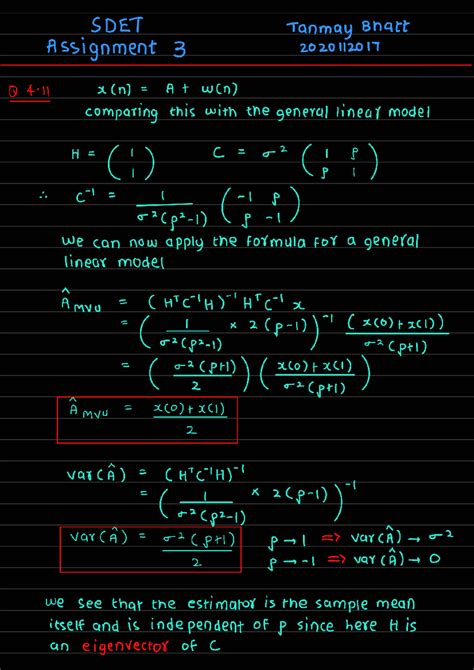 SDET Tanmay Bhatt
Assignment 3 2020112017
Q 4.11 x(n) = A + w(n)
comparing this with the general linear model
H = ( 1 ; 1 ) C = σ² ( 1 ρ ; ρ 1 )
∴ C⁻¹ = 1 / σ²(ρ²-1) ( -1 ρ ; ρ -1 )
we can now apply the formula for a general
linear model
Â MVU = (HᵀC⁻¹H)⁻¹ HᵀC⁻¹ x
= ( 1 / σ²(ρ²-1) × 2(ρ-1) )⁻¹ (x(0)+x(1)) / σ²(ρ+1)
= ( σ²(ρ+1) / 2 ) ( x(0)+x(1) / σ²(ρ+1) )
Â MVU = x(0)+x(1) / 2
var(Â) = (HᵀC⁻¹H)⁻¹
= ( 1 / σ²(ρ²-1) × 2(ρ-1) )⁻¹
var(Â) = σ²(ρ+1) / 2 ρ→1 ⇒ var(Â)→ σ²
ρ→-1 ⇒ var(Â)→ 0
we see that the estimator is the sample mean
itself and is independent of ρ since here H is
an eigenvector of C